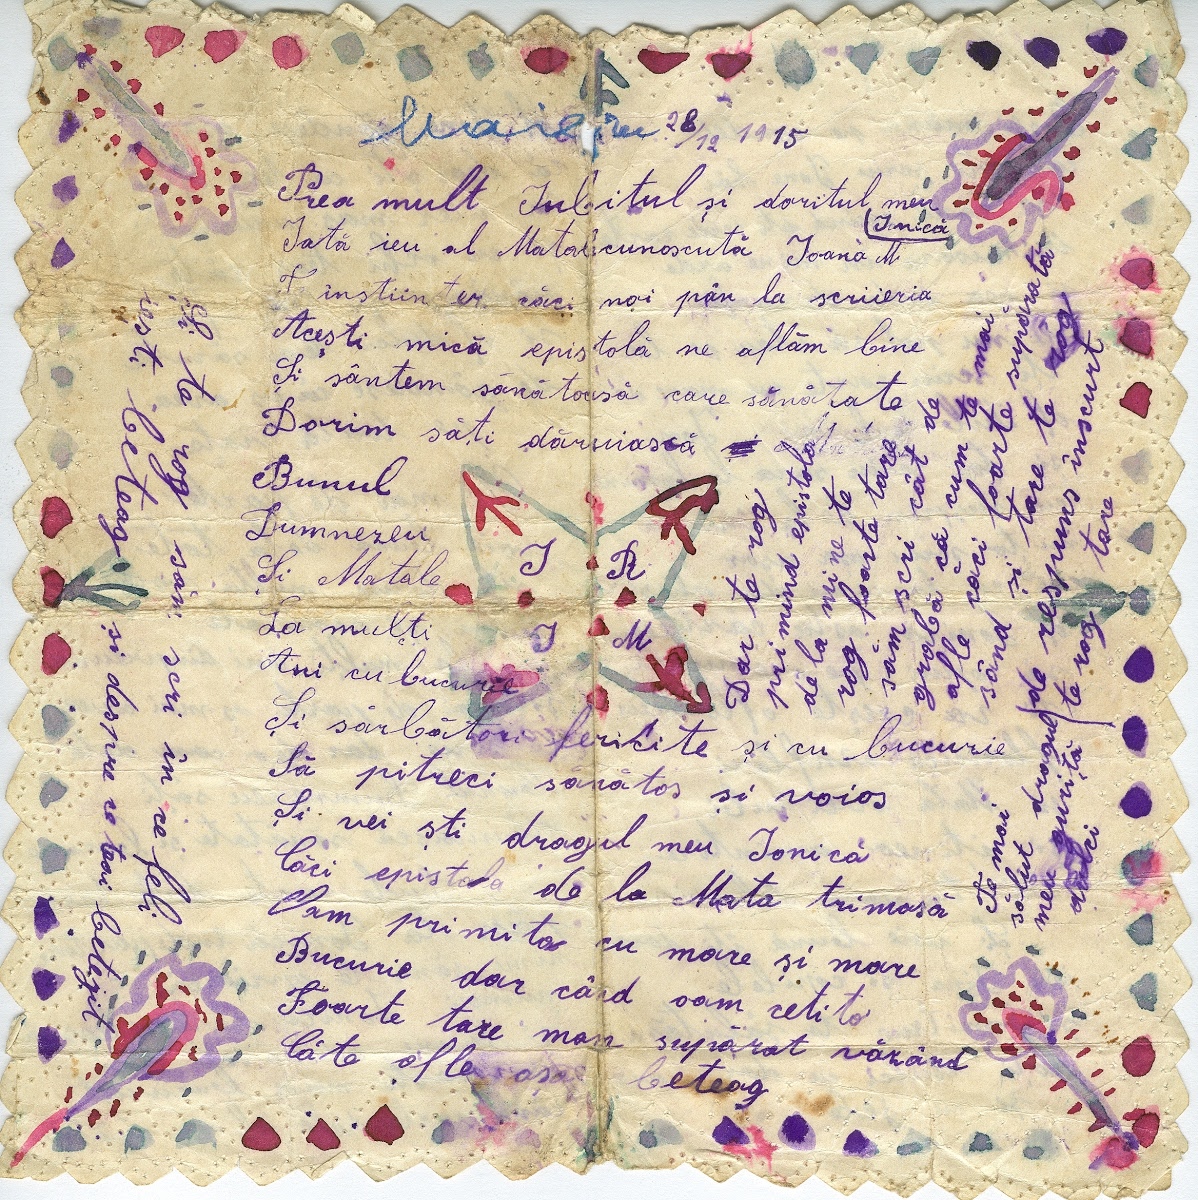 28/12 1915
Prea mult Iubitul și doritul meu
Ionică
Iată ieu al Matale cunoscută Ioana M
căci noi pân la scriieria
Acești mică epistolă ne aflăm bine
Și sântem sănătoasă care sănătate
Dorim săți dăruiască
Bunul
Dumnezeu
Și Matale
La mulți
Ani cu bucurie
Și sărbători fericite și cu bucurie
Să pitreci sănătos și voios
Și vei ști dragul meu Ionică
Căci epistola de la Mata trimasă
Oam primito cu mare și mare
Bucurie dar când oam cetito
Foarte tare mam supărat văzând
Câte afle așa beteag
I R
I M
Dar te rog
primind epistola
de la mine te
rog foarte tare
sămi scri cât de
grabă că cum te mai
afle căci foarte supărată
sând și tare te rog
de respuns înscurt
te rog tare
Te mai
sălut dragul
meu guriță
dulci
Și te rog sămi scri în ce feli
iesti beteag
și despre ce teai betejit